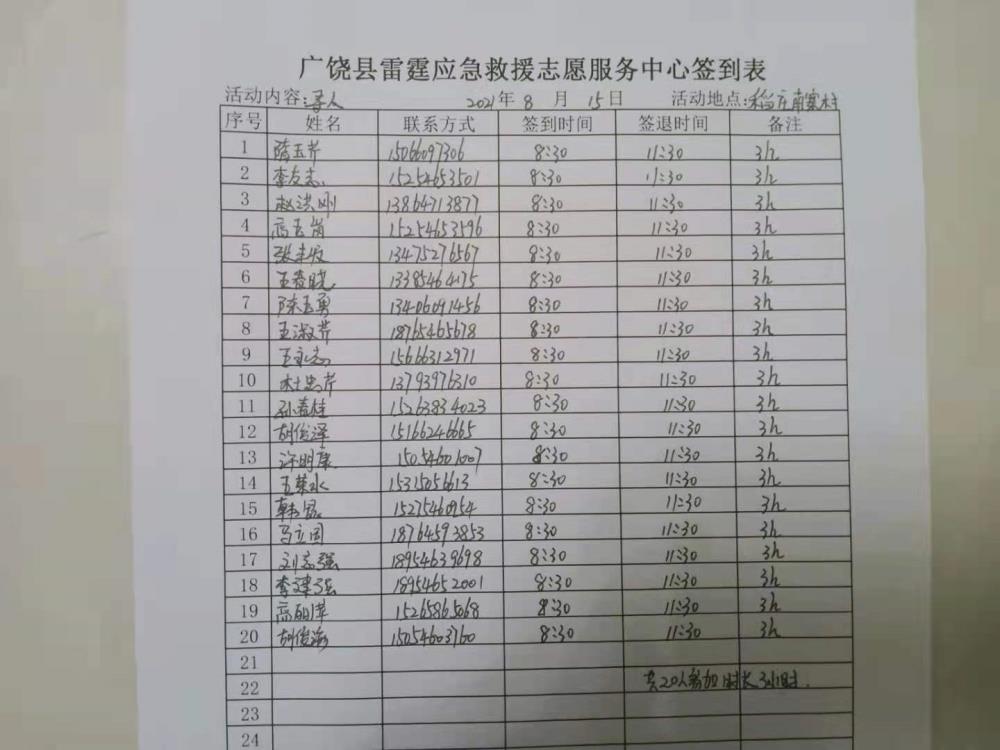 广饶县雷霆应急救援志愿服务中心签到表
活动内容:寻人 2021年 8 月 15日 活动地点:稻庄南寨村
序号 姓名 联系方式 签到时间 签退时间 备注
1 隋玉芹 15066097306 8:30 11:30 3h
2 李友志 15254653501 8:30 11:30 3h
3 赵洪刚 13864713877 8:30 11:30 3h
4 高玉岗 15254653596 8:30 11:30 3h
5 13475276567 8:30 11:30 3h
6 王春晓 13385464175 8:30 11:30 3h
7 陈玉勇 13406091456 8:30 11:30 3h
8 王淑芹 18765465678 8:30 11:30 3h
9 王永志 15666312971 8:30 11:30 3h
10 杜忠芹 13793976310 8:30 11:30 3h
11 孙春佳 15263834023 8:30 11:30 3h
12 胡俊泽 15166246665 8:30 11:30 3h
13 许明康 15054601007 8:30 11:30 3h
14 王荣水 15315056613 8:30 11:30 3h
15 15275460254 8:30 11:30 3h
16 马立国 18764593853 8:30 11:30 3h
17 刘志强 18954639698 8:30 11:30 3h
18 李建强 18954652001 8:30 11:30 3h
19 高丽萍 15265865068 8:30 11:30 3h
20 胡俊海 15054603760 8:30 11:30 3h
21
22 共20人参加时长3小时.
23
24